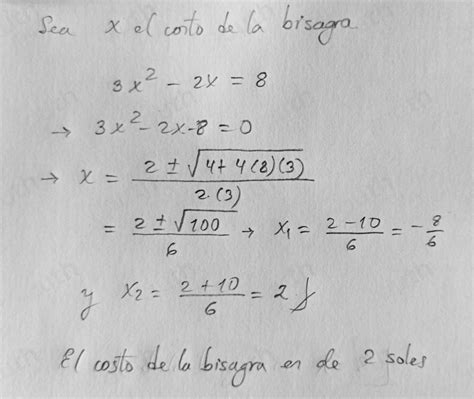 Sea x el costo de la bisagra
3x² - 2x = 8
→ 3x² - 2x - 8 = 0
→ x = (2 ± √(4 + 4(8)(3))) / 2(3)
= (2 ± √100) / 6 → x₁ = (2 - 10) / 6 = -8/6
y x₂ = (2 + 10) / 6 = 2
El costo de la bisagra en de 2 soles